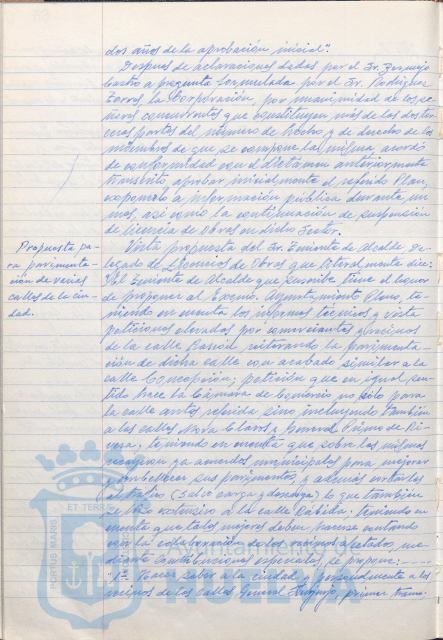 dos años de la aprobación inicial".
Despues de aclaraciones dadas por el Sr. Bermejo
Castro a pregunta formulada por el Sr. Rodríguez
Torres la Corporación, por unanimidad de los se-
ñores concurrentes que constituyen más de las dos ter-
ceras partes del número de hecho y de derecho de los
miembros de que se compone la misma, acordó
de conformidad con el dictámen anteriormente
transcrito, aprobar inicialmente el referido Plan,
exponerlo a información pública durante un
mes, así como la continuación de suspensión
de licencia de obras en dicho Sector.
Propuesta pa-
ra pavimenta-
ción de varias
calles de la ciu-
dad.
Vista propuesta del Sr. Teniente de Alcalde De-
legado de Servicios de Obras que literalmente dice:
"El Teniente de Alcalde que suscribe tiene el honor
de proponer al Excmo. Ayuntamiento Pleno, te-
niendo en cuenta los informes tecnicos y vista
peticiones elevadas por comerciantes y vecinos
de la calle Rascón reiterando la pavimenta-
ción de dicha calle con acabado similar a la
calle Concepción; petición que en igual sen-
tido hace la Cámara de Comercio no sólo para
la calle antes referida sino incluyendo también
a las calles Nova Claros y General Primo de Ri-
vera, teniendo en cuenta que sobre las mismas
recayeron ya acuerdos municipales para mejorar
y embellecer sus pavimentos, y además
(salvo carga y descarga) lo que también
se hizo extensivo a la calle teniendo en
cuenta que tales mejoras deben hacerse contando
con la colaboración de los vecinos afectados, me-
diante contribuciones especiales, se propone:
"1º. Hacer saber a la Ciudad y personalmente a los
vecinos de las calles General primer tramo.
PORTUS MARIS ET TERRAE
Ayuntamiento de
HUELVA